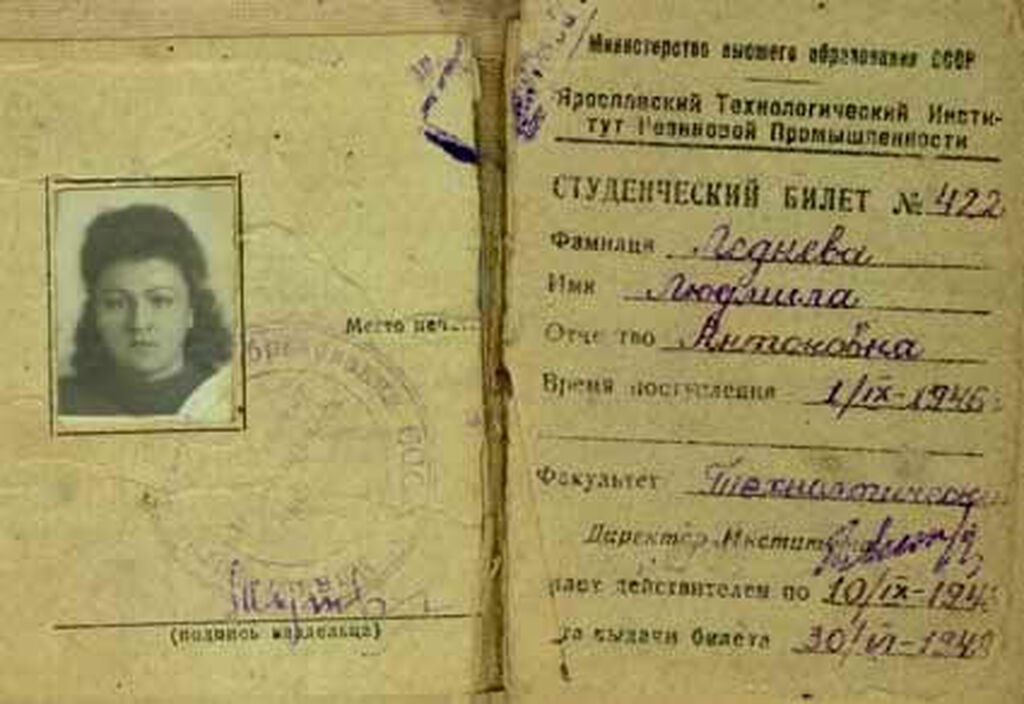 Место печати
(подпись владельца)
Министерство высшего образования СССР
Ярославский Технологический Инсти-
тут Резиновой Промышленности
СТУДЕНЧЕСКИЙ БИЛЕТ № 422
Фамилия Леднева
Имя Людмила
Отчество Антоновна
Время поступления 1/IX-1946
Факультет Технологический
Директор Института
Билет действителен по 10/IX-194
та выдачи билета 30/VI-194